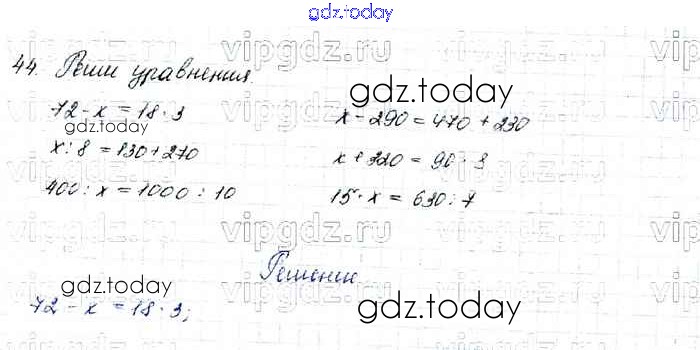 gdz.today
44. Реши уравнения.
72 - x = 18 · 3
x : 8 = 130 + 270
400 : x = 1000 : 10
x - 290 = 470 + 230
x + 320 = 90 · 9
15 · x = 630 : 7
Решение
72 - x = 18 · 3;
vipgdz.ru
gdz.today
gdz.today
gdz.today
gdz.today